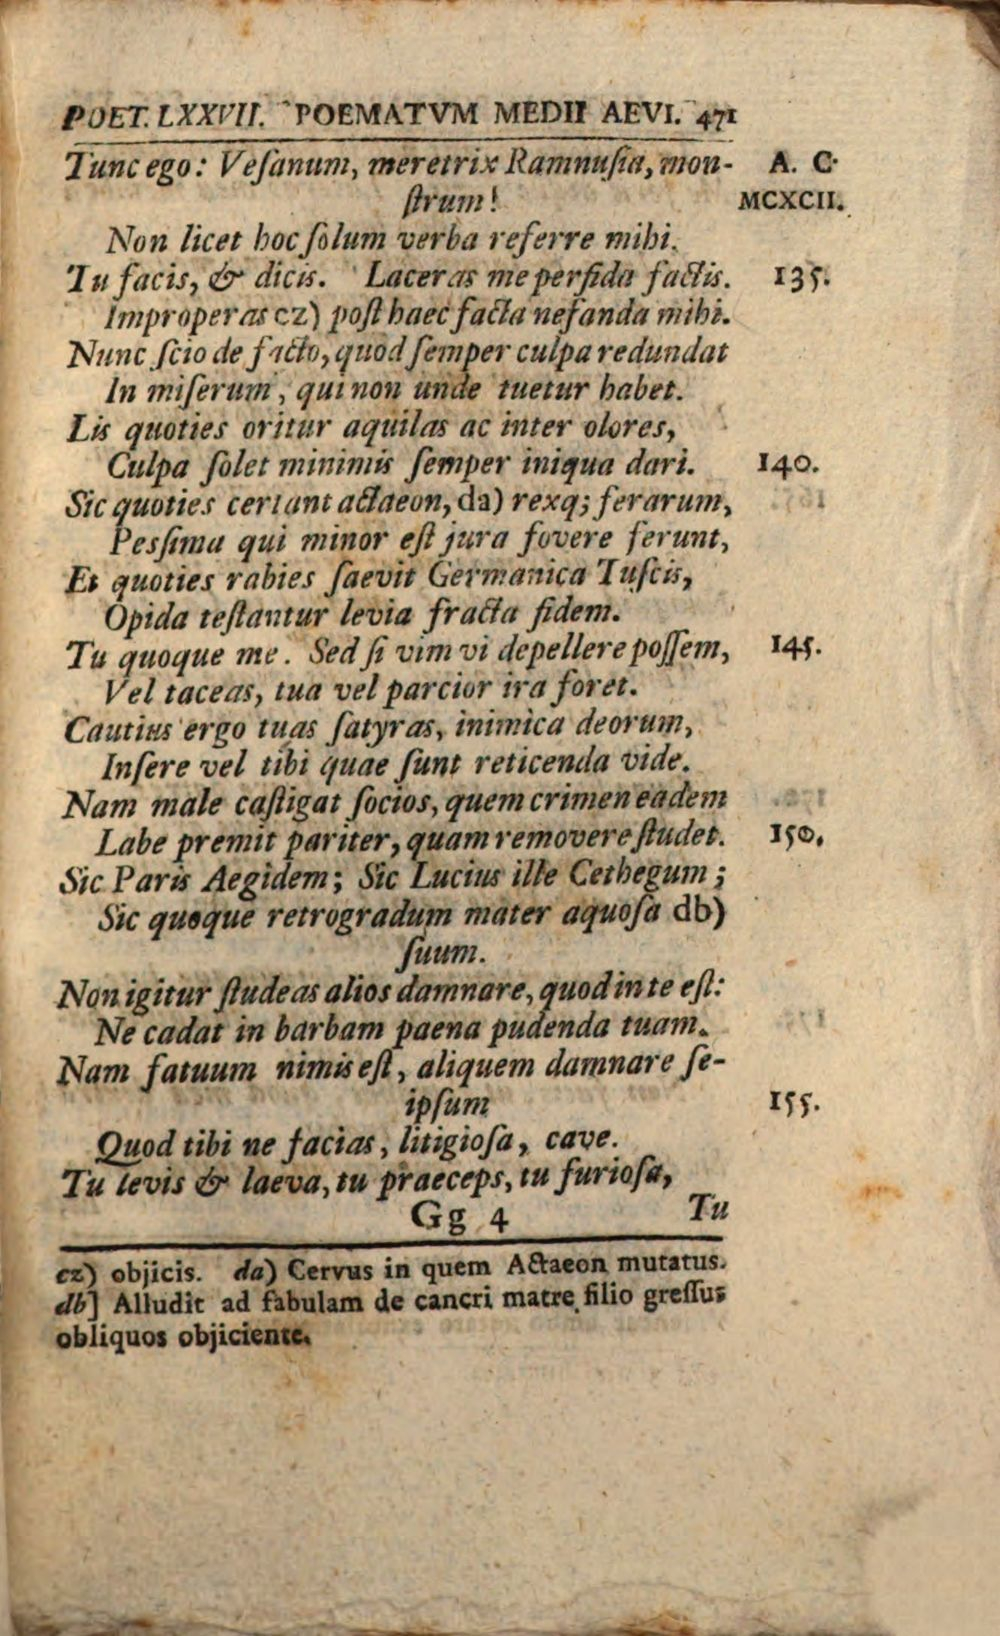 POET. LXXVII. POEMATVM MEDII AEVI. 471
Tunc ego: Veſanum, meretrix Ramnuſia, mon- A. C.
ſtrum! MCXCII.
Non licet hoc ſolum verba referre mihi.
Tu facis, & dicis. Laceras me perfida factis. 135.
Improperas cz) poſt haec facta nefanda mihi.
Nunc ſcio de facto, quod ſemper culpa redundat
In miſerum, qui non unde tuetur habet.
Lis quoties oritur aquilas ac inter olores,
Culpa ſolet minimis ſemper iniqua dari. 140.
Sic quoties certant actaeon, da) rexq; ferarum,
Pesſima qui minor eſt jura fovere ferunt,
Et quoties rabies ſaevit Germanica Tuſcis,
Opida teſtantur levia fracta fidem.
Tu quoque me. Sed ſi vim vi depellere poſſem, 145.
Vel taceas, tua vel parcior ira foret.
Cautius ergo tuas ſatyras, inimica deorum,
Inſere vel tibi quae ſunt reticenda vide.
Nam male caſtigat ſocios, quem crimen eadem
Labe premit pariter, quam removere ſtudet. 150.
Sic Paris Aegidem; Sic Lucius ille Cethegum;
Sic quoque retrogradum mater aquoſa db)
ſuum.
Non igitur ſtudeas alios damnare, quod in te eſt:
Ne cadat in barbam paena pudenda tuam.
Nam fatuum nimis eſt, aliquem damnare ſe-
ipſum 155.
Quod tibi ne facias, litigioſa, cave.
Tu levis & laeva, tu praeceps, tu furioſa,
Gg 4 Tu
cz) objicis. da) Cervus in quem Actaeon mutatus.
db] Alludit ad fabulam de cancri matre filio greſſus
obliquos objiciente.